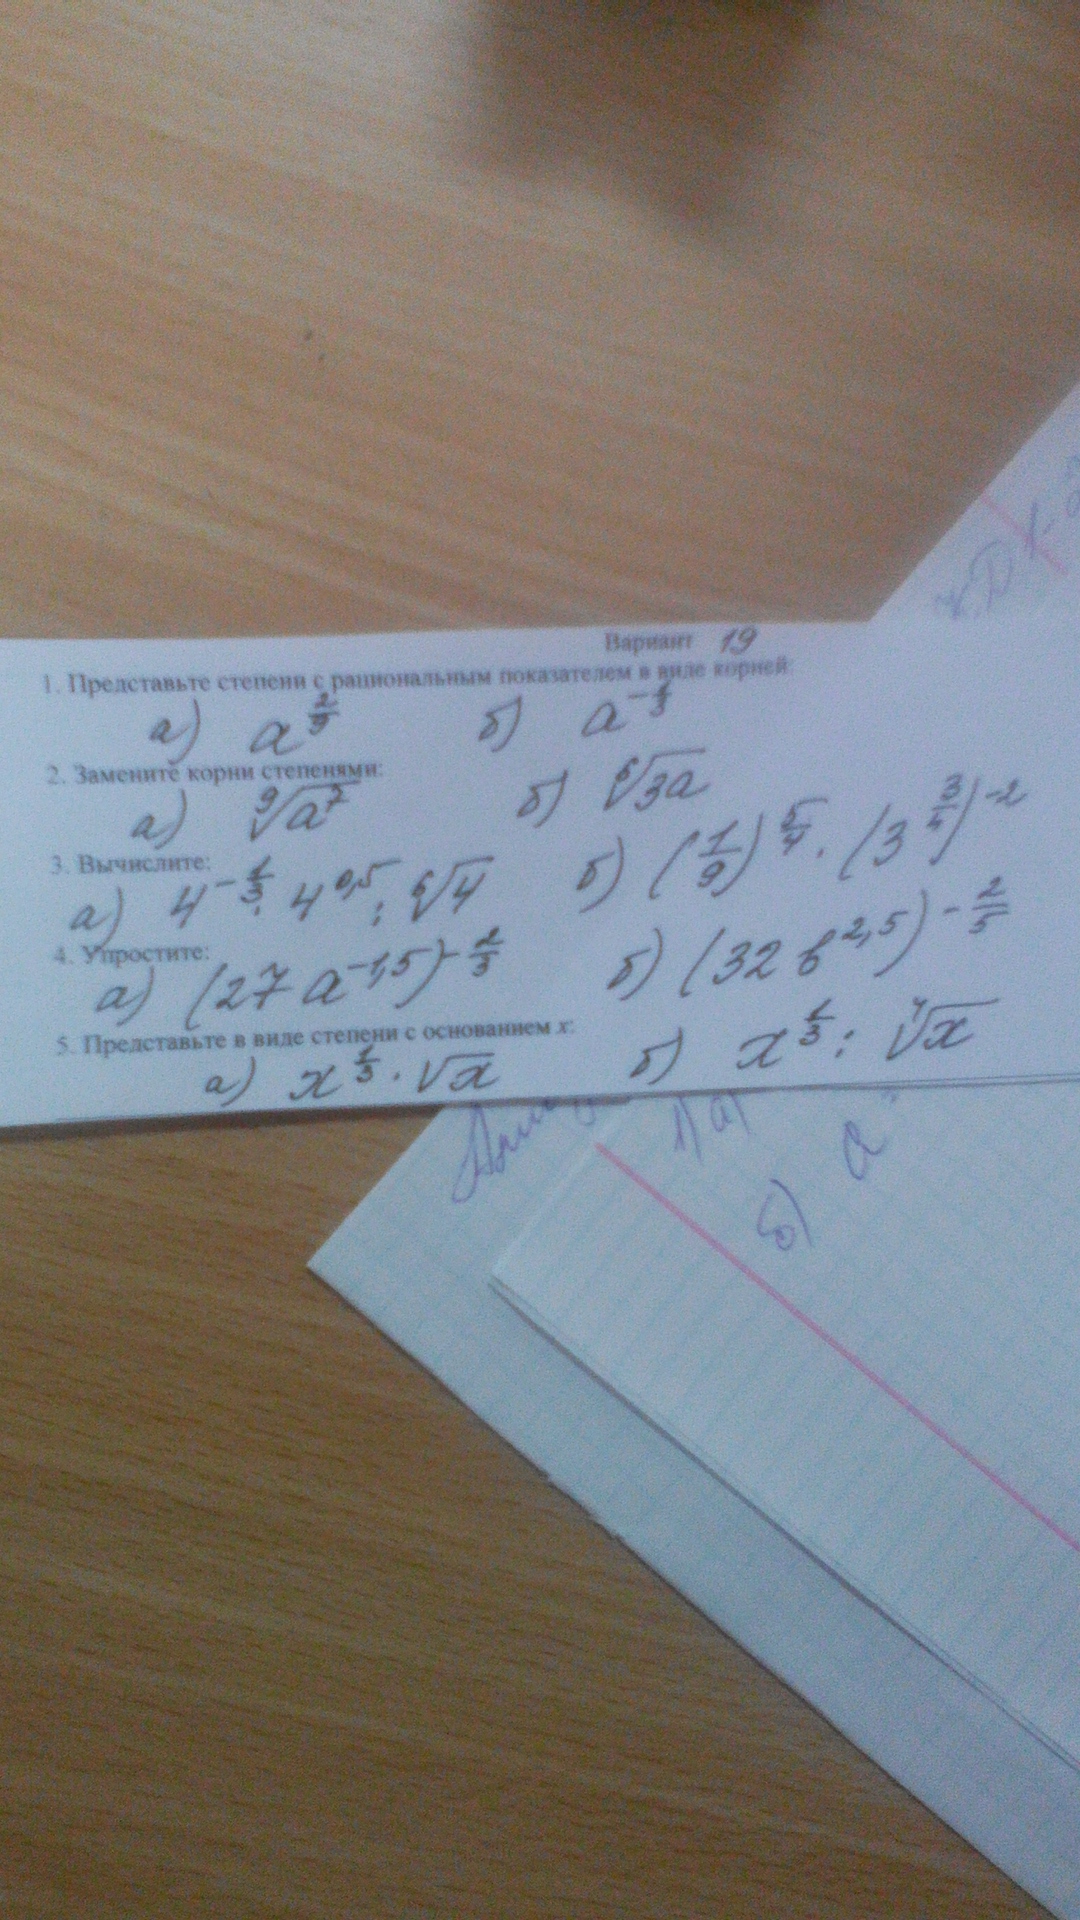 Вариант 19
1. Представьте степени с рациональным показателем в виде корней:
а) a^{2/9} б) a^{-1/3}
2. Замените корни степенями:
а) ⁹√a⁷ б) ⁶√3a
3. Вычислите:
а) 4^{-1/3} · 4^{0,5} : ⁶√4 б) (1/9)^{5/4} · (3^{3/4})^{-2}
4. Упростите:
а) (27 a^{-1,5})^{-2/3} б) (32 b^{2,5})^{-2/5}
5. Представьте в виде степени с основанием x:
а) x^{1/3} · √x б) x^{1/3} : ⁷√x
1) а)
б) a